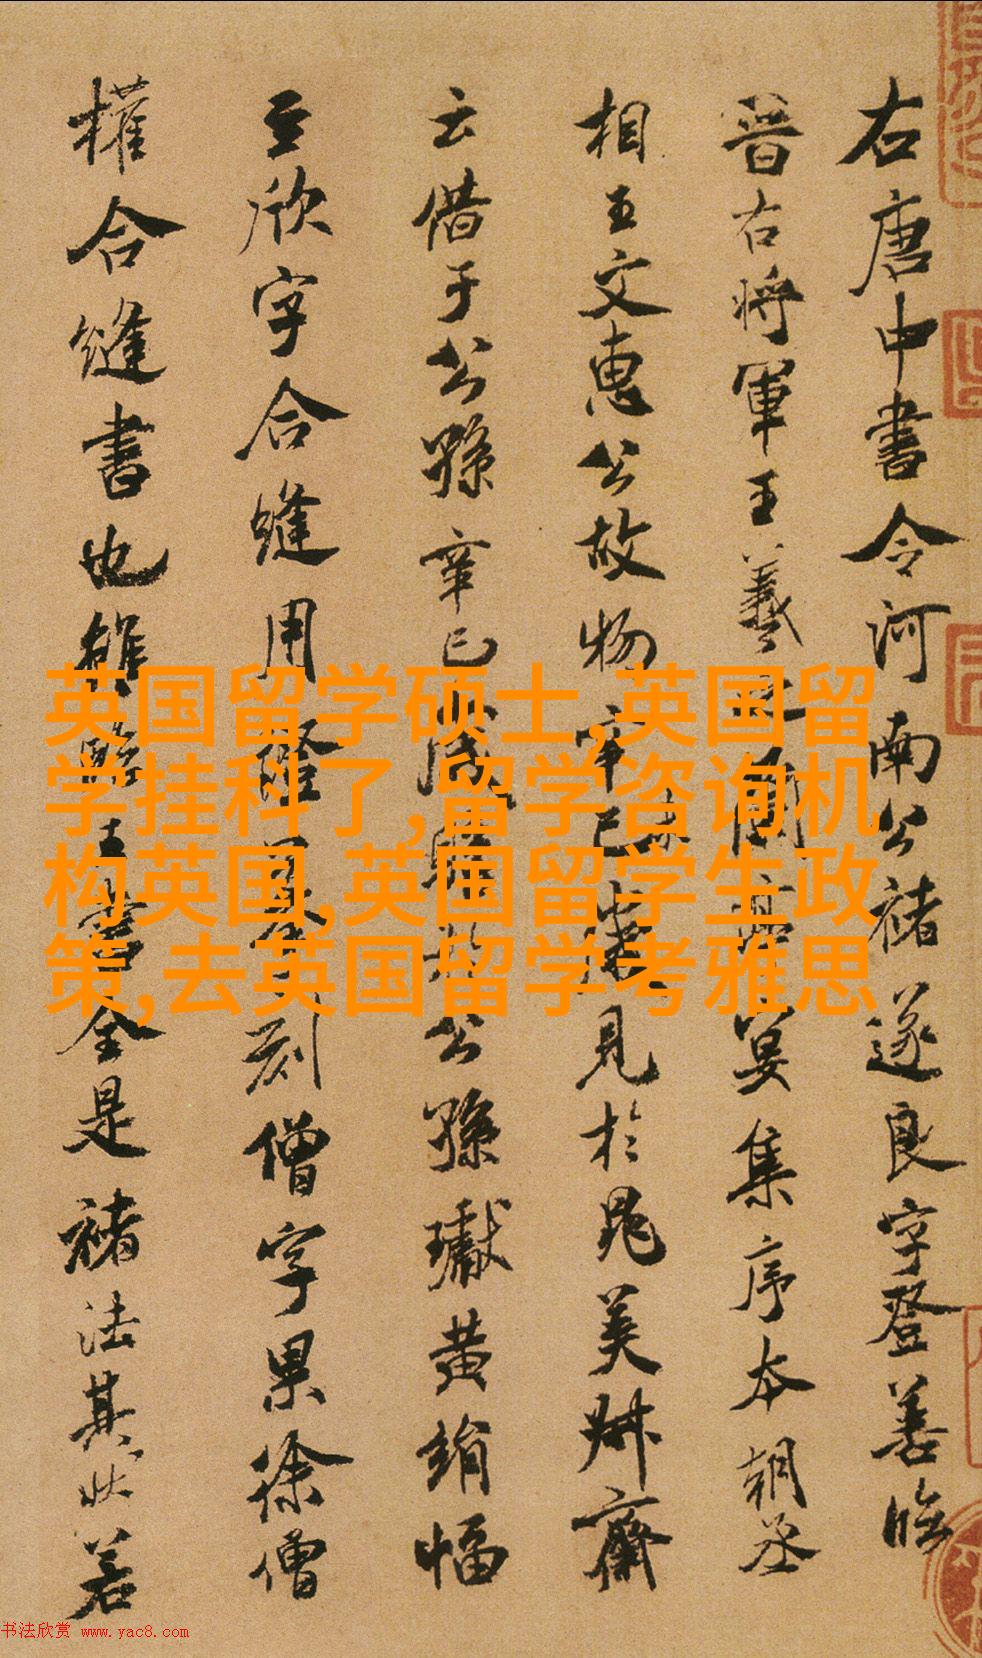 右唐中書令河南公褚遂良字登善臨
晉右將軍王羲之蘭亭宴集序本朝丞
相王文惠公故物辛巳歲見於晁美叔齋
云借于公孫辛巳歲購于公孫瓛黃絹幅
至欣字合縫用證摹刻僧字果徐僧
權合縫書也雖臨王書全是褚法其狀若
英国留学硕士,英国留
学挂科了,留学咨询机
构英国,英国留学生政
策,去英国留学考雅思
书法欣赏 www.yac8.com